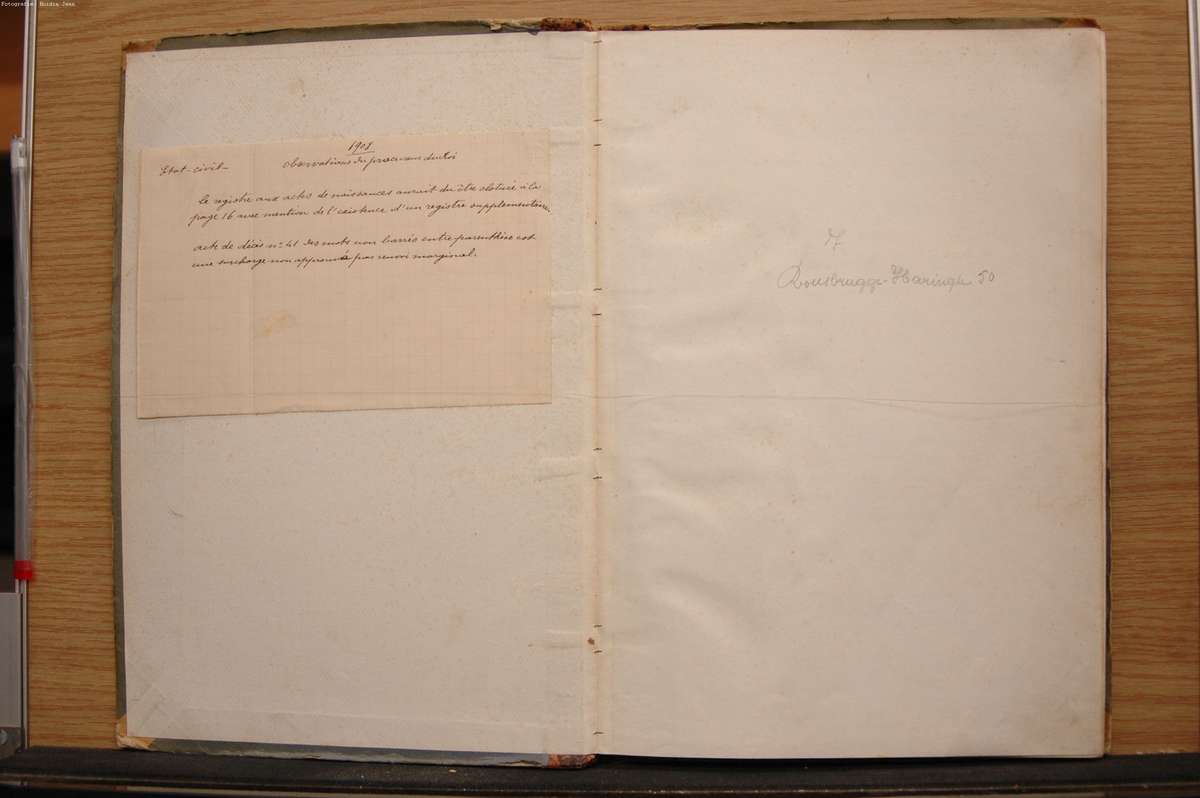 Fotografie: Huidra Jean
1908
Etat-civil- Observations du procureur du Roi
Le registre aux actes de naissances aurait du être cloturé à la
page 16 avec mention de l'existence d'un registre supplementaire.
acte de décès n° 41 des mots non barrés entre parenthèse est
une surcharge non approuvée par renvoi marginal.
7
Rousbrugge-Haringhe 50